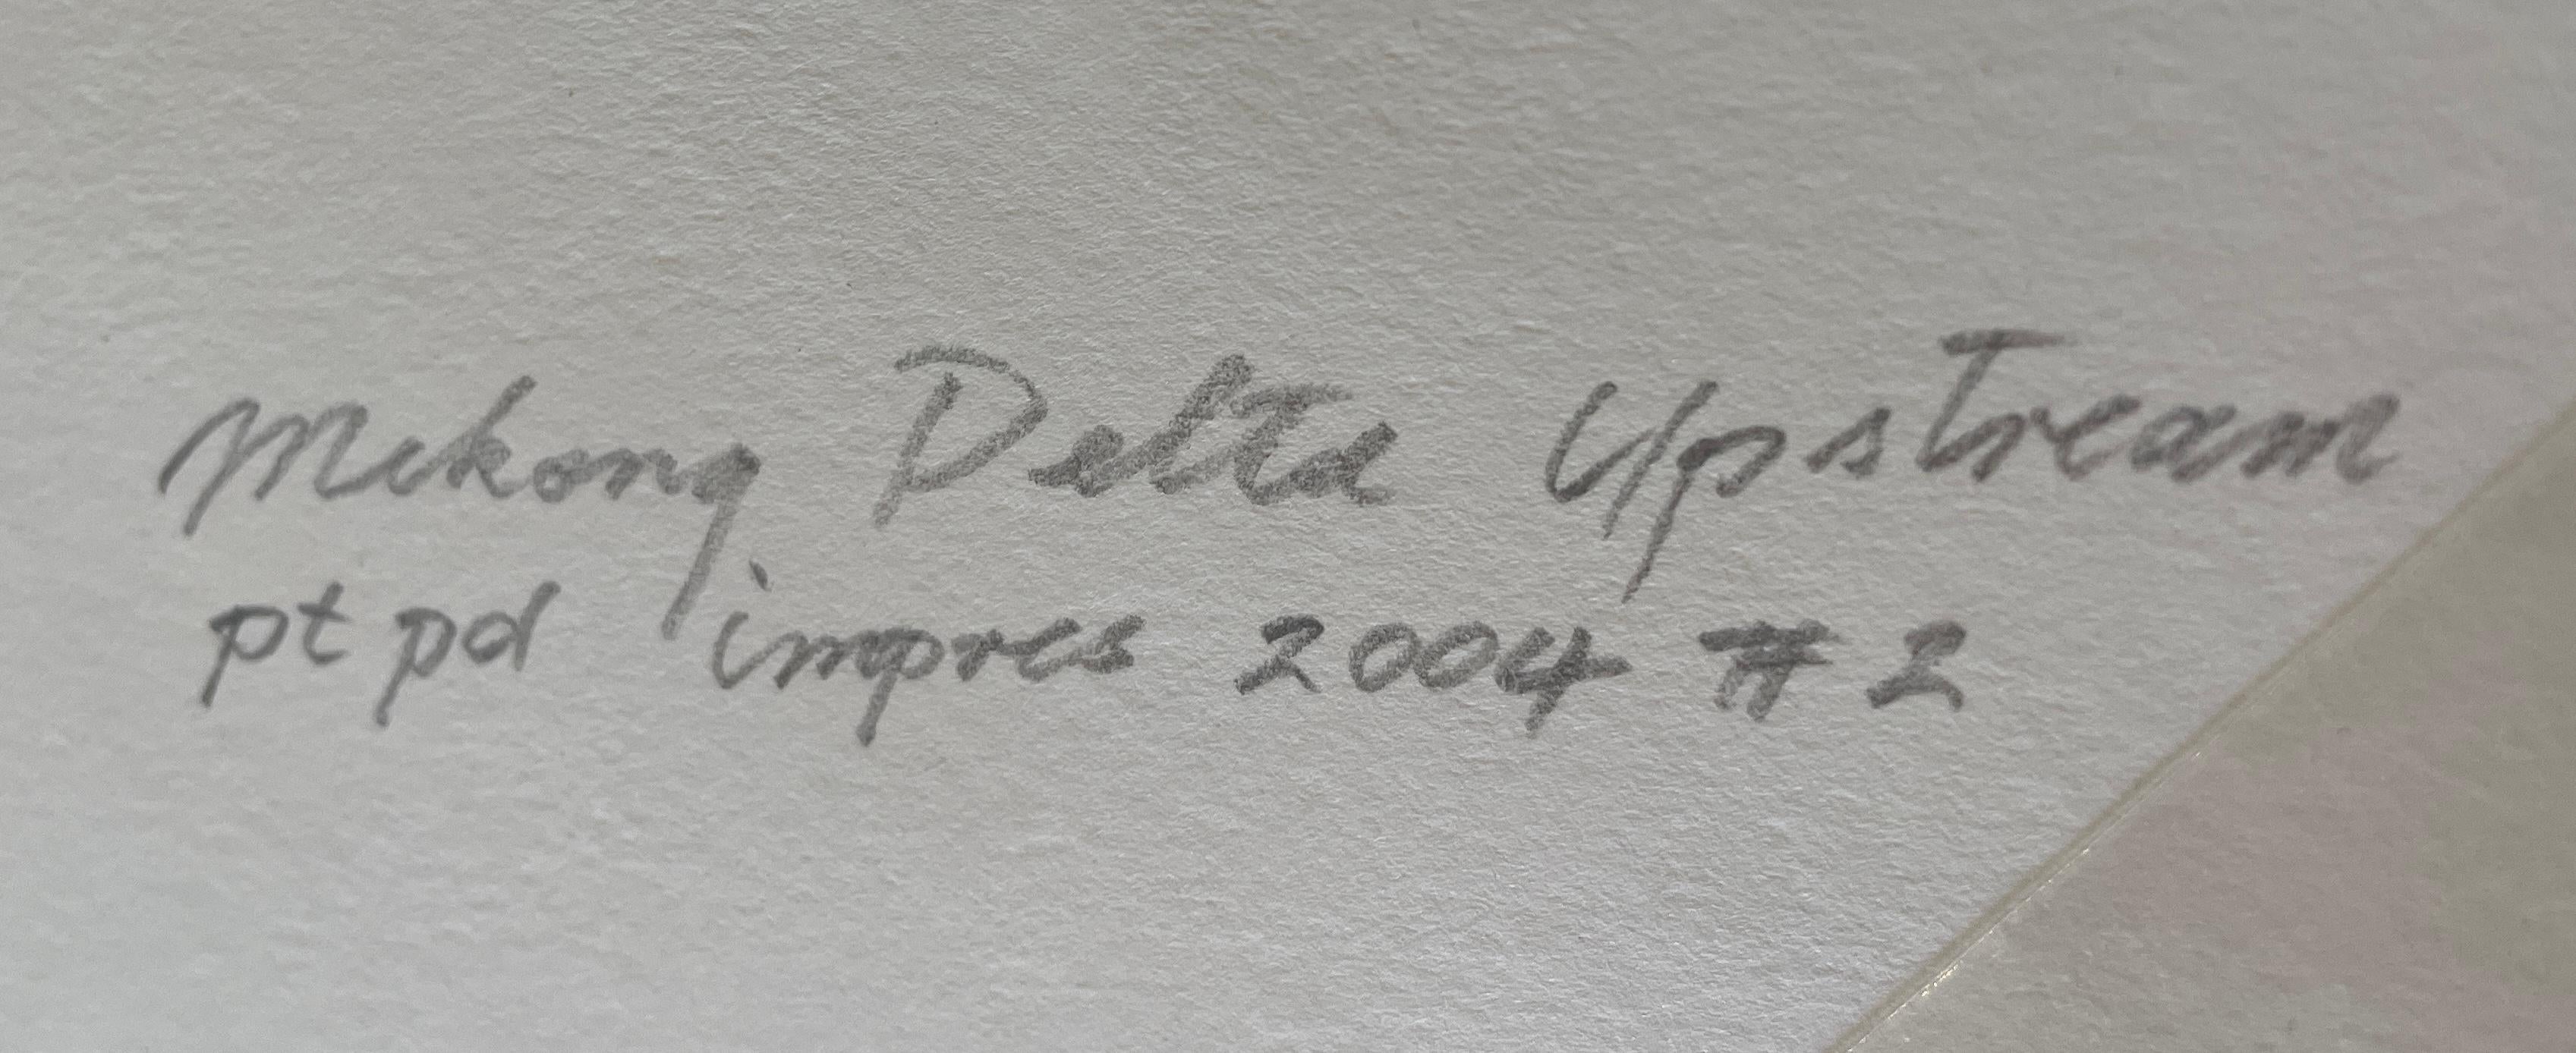 Mekong Delta Upstream
pt pd impres 2004 # 2